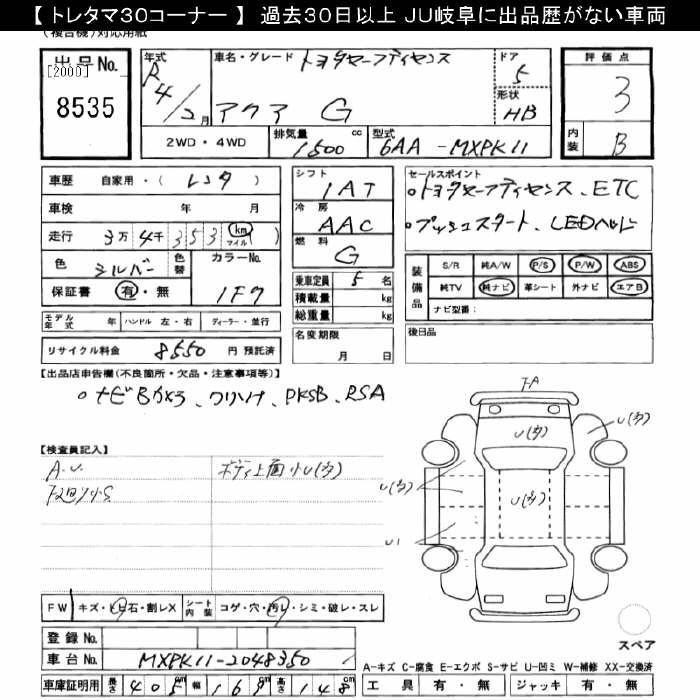 【トレタマ30コーナー】 過去30日以上 JU岐阜に出品歴がない車両
(複合機)対応用紙
出品No. [2000] 8535
年式 R4/2月
車名・グレード トヨタセーフティセンス
アクア G
ドア 5
形状 HB
評価点 3
内装 B
2WD・4WD
排気量 1500 cc
型式 6AA-MXPK11
車歴 自家用・(レンタ)
車検 年 月
走行 3万4千353 km マイル ( )
色 シルバー 色替 カラーNo. 1F7
保証書 有・無
モデル年式 年 ハンドル 左・右 ディーラー・並行
リサイクル料金 8550 円 預託済
シフト 1AT
冷房 AAC
燃料 G
乗車定員 5 名
積載量 kg
総重量 kg
名変期限 月 日
セールスポイント
○トヨタセーフティセンス、ETC
○プッシュスタート、LEDヘッド
装備品 S/R 純A/W P/S P/W ABS
純TV 純ナビ 革シート 外ナビ エアB
ナビ型番:
後日品
【出品店申告欄(不良箇所・欠品・注意事項等)】
○ナビBカメラ、クリソナ、PKSB、RSA
【検査員記入】
A.U. ボディ上面小U(多)
F-A
U(多)
U(多)
U(多)
U(多)
U1
FW キズ・トビ石・割レX シート内装 コゲ・穴・汚レ・シミ・破レ・スレ
登録No.
車台No. MXPK11-2048350
車庫証明用 長さ 405cm 幅 169cm 高さ 148cm
スペア
A-キズ C-腐食 E-エクボ S-サビ U-凹ミ W-補修 XX-交換済
工具 有・無 ジャッキ 有・無